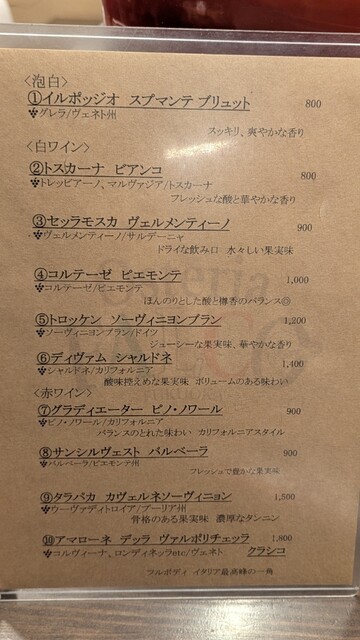 〈泡白〉
①イルポッジオ スプマンテ ブリュット 800
グレラ/ヴェネト州
スッキリ、爽やかな香り
〈白ワイン〉
②トスカーナ ビアンコ 800
トレッビアーノ、マルヴァジア/トスカーナ
フレッシュな酸と華やかな香り
③セッラモスカ ヴェルメンティーノ 900
ヴェルメンティーノ/サルデーニャ
ドライな飲み口 水々しい果実味
④コルテーゼ ピエモンテ 1,000
コルテーゼ/ピエモンテ
ほんのりとした酸と樽香のバランス◎
⑤トロッケン ソーヴィニヨンブラン 1,200
ソーヴィニヨンブラン/ドイツ
ジューシーな果実味、華やかな香り
⑥ディヴァム シャルドネ 1,400
シャルドネ/カリフォルニア
酸味控えめな果実味 ボリュームのある味わい
〈赤ワイン〉
⑦グラディエーター ピノ・ノワール 900
ピノ・ノワール/カリフォルニア
バランスのとれた味わい カリフォルニアスタイル
⑧サンシルヴェスト バルベーラ 900
バルベーラ/ピエモンテ州
フレッシュで豊かな果実味
⑨タラパカ カヴェルネソーヴィニョン 1,500
ウーヴァディトロイア/プーリア州
骨格のある果実味 濃厚なタンニン
⑩アマローネ デッラ ヴァルポリチェッラ 1,800
コルヴィーナ、ロンディネッラetc/ヴェネト クラシコ
フルボディ イタリア最高峰の一角